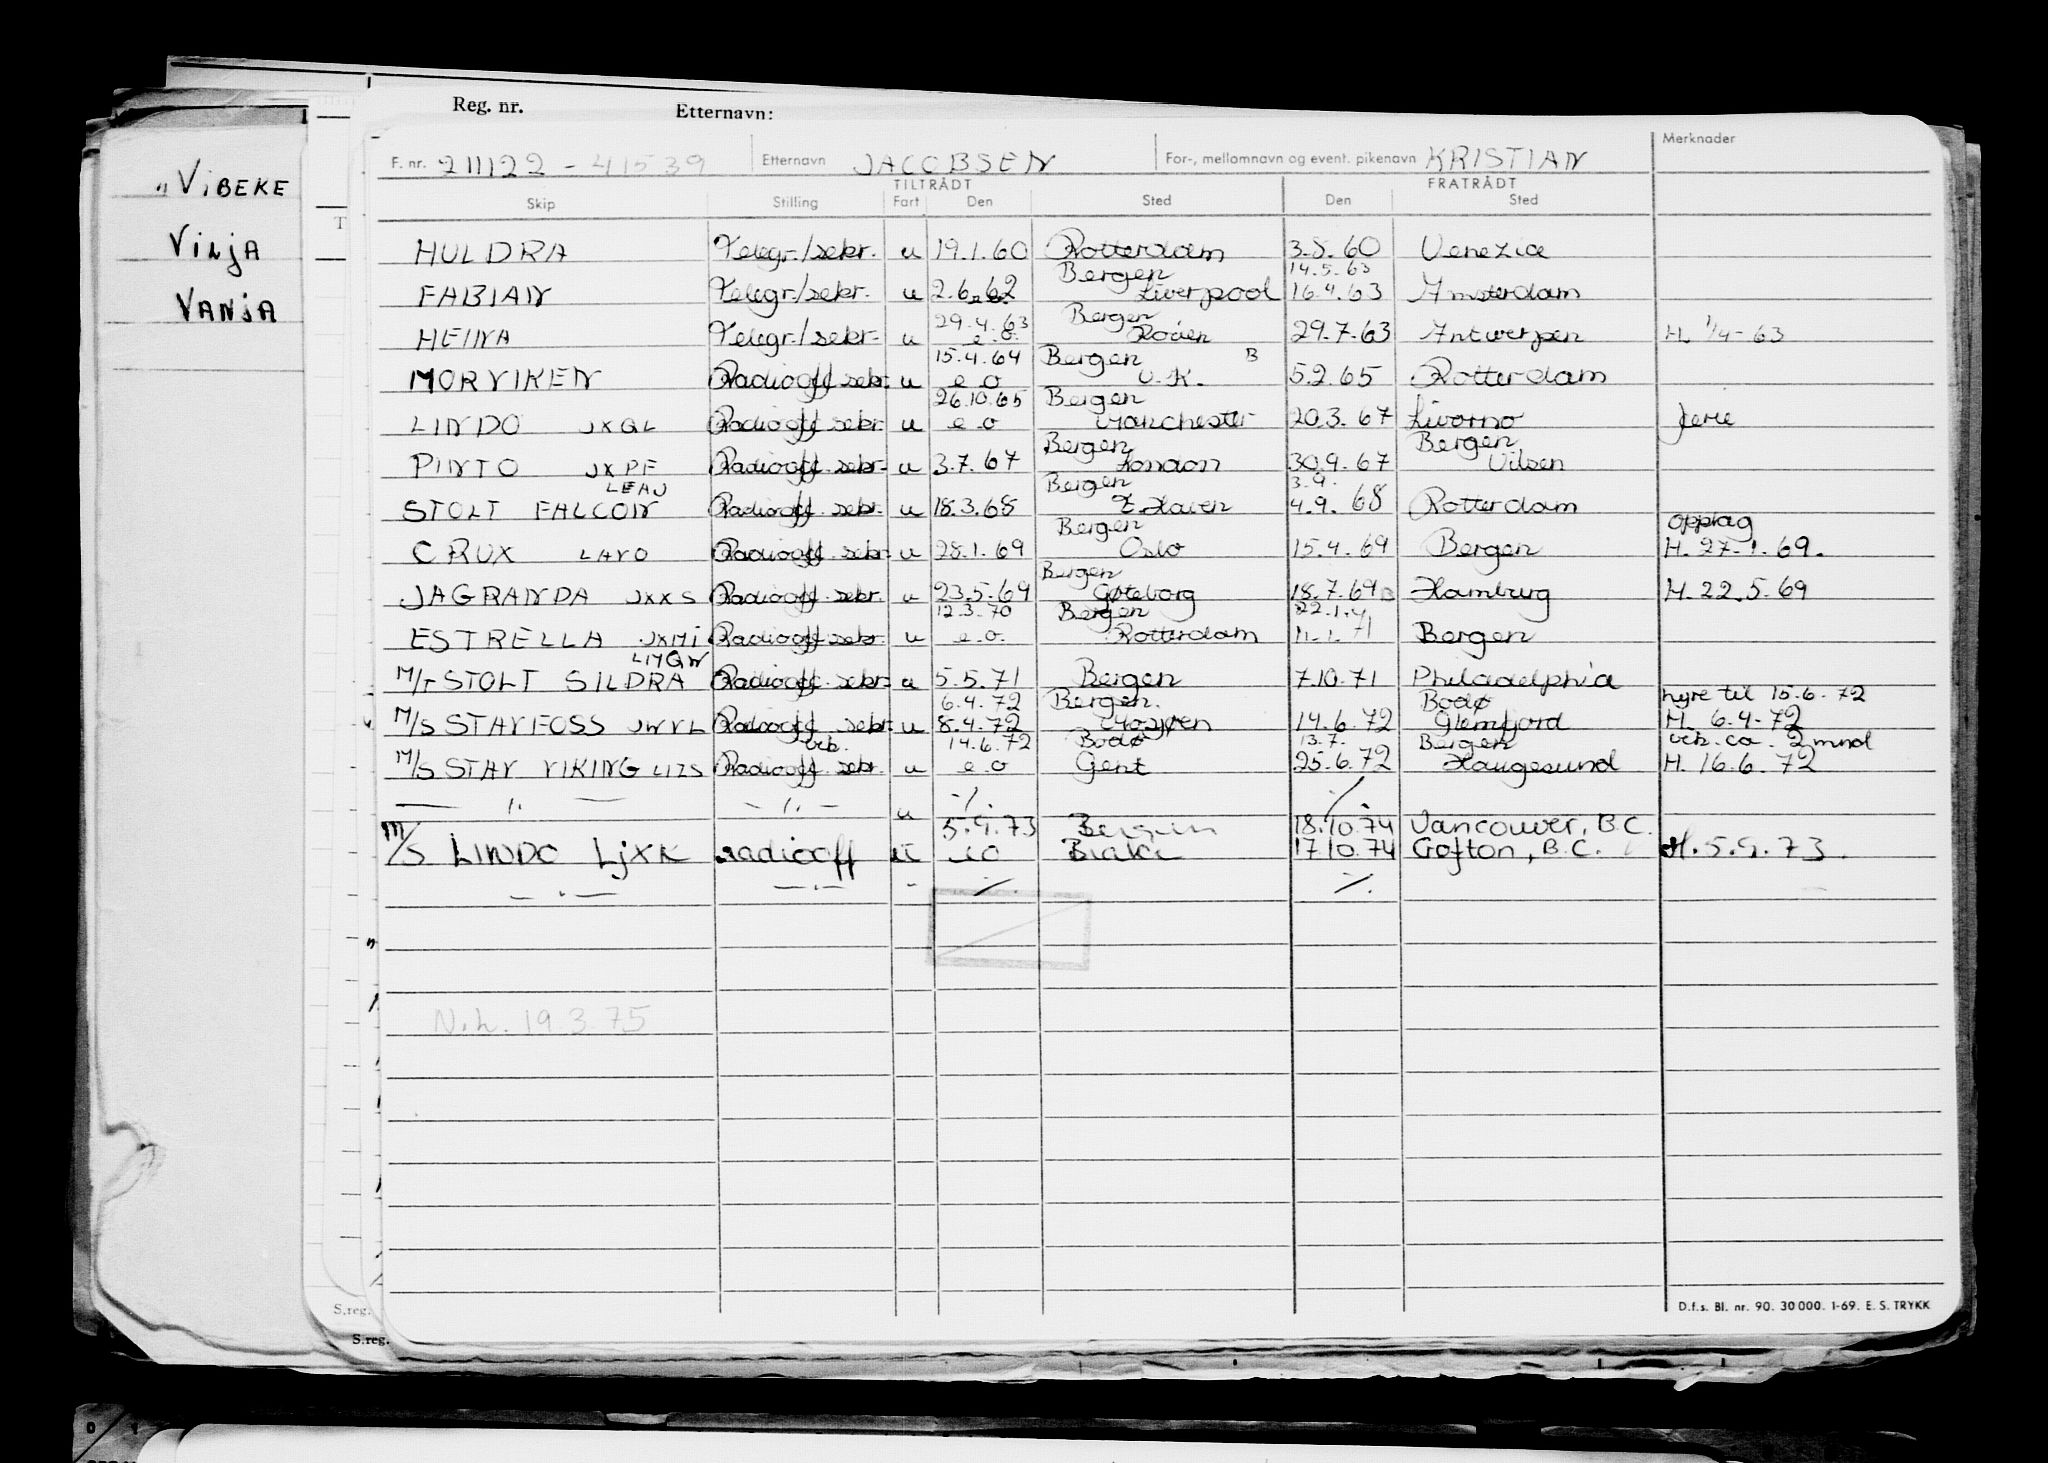 Reg. nr. Etternavn:
"VIBEKE
VILJA
VANJA
F. nr. 211122 - 41539 Etternavn JACOBSEN For-, mellomnavn og event. pikenavn KRISTIAN Merknader
TILTRÅDT FRATRÅDT
Skip Stilling Fart Den Sted Den Sted
HULDRA Telegr./sekr. u 19.1.60 Rotterdam 3.8.60 Venezia
Bergen 14.5.63
FABIAN Telegr./sekr. u 2.6.62 Liverpool 16.4.63 Amsterdam
29.4.63 Bergen
HEINA Telegr./sekr. u e.o. Rouen 29.7.63 Antwerpen H. 1/4-63
15.4.64 Bergen B
MORVIKEN Radiooff sekr. u e o U.K. 5.2.65 Rotterdam
26.10.65 Bergen
LINDO JXQL Radiooff sekr. u e o Manchester 20.3.67 Livorno ferie
Bergen Bergen
PINTO JXPF Radiooff. sekr. u 3.7.67 London 30.9.67
LEAJ Bergen 3.9.
STOLT FALCON Radiooff. sekr. u 18.3.68 4.9.68 Rotterdam
Bergen opplag
CRUX LAVO Radiooff. sekr. u 28.1.69 Oslo 15.4.69 Bergen H. 27.1.69.
Bergen
JAGRANDA JXXS Radiooff. sekr. u 23.5.69 Gøteborg 18.7.69 B Hamburg H. 22.5.69
12.3.70 Bergen 22.1.71
ESTRELLA JXMI Radiooff sekr. u e.o. Rotterdam 11.1.71 Bergen
LMQW
M/T STOLT SILDRA Radiooff. sekr. u 5.5.71 Bergen 7.10.71 Philadelphia
6.4.72 Bergen. Bodø hyre til 15.6.72
M/S STAVFOSS JWVL Radiooff sekr. u 8.4.72 14.6.72 Glomfjord H. 6.4.72
vik. 14.6.72 Bodø 13.7. Bergen vik. ca. 2 mnd
M/S STAV VIKING LIZS Radiooff sekr. u e o Gent 25.6.72 Haugesund H. 16.6.72
— " — — " — u -/. ./.
5.9.73 Bergen 18.10.74 Vancouver, B.C.
M/S LINDO LJXK radiooff u eo Brake 17.10.74 Crofton, B.C. H. 5.9.73.
— " — — " — - ./. ./.
N.L. 19.3.75
S.reg.
S.reg.
D.f.s. Bl. nr. 90. 30 000. 1-69. E. S. TRYKK